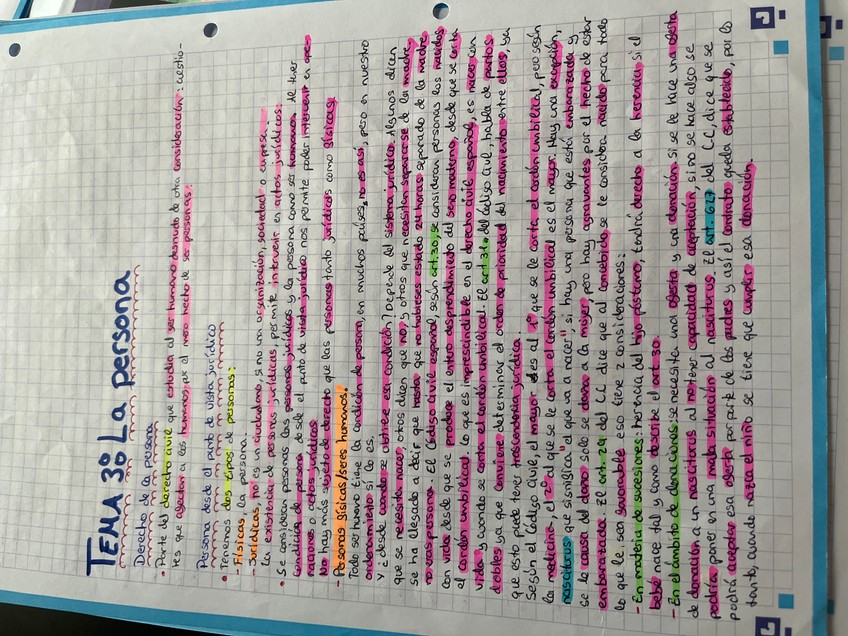 TEMA 3º La persona
Derecho de la persona
· Parte del derecho civil que estudia al ser humano desnudo de otra consideración: cuestio-
nes que afectan a los humanos por el mero hecho de ser personas.
Persona desde el punto de vista jurídico
· Tenemos dos tipos de personas:
- Físicas, la persona.
- Jurídicas, no es un ciudadano, si no una organización, sociedad o empresa.
La existencia de personas jurídicas, permite intervenir en actos jurídicos.
· Se consideran personas las personas jurídicas y la persona como ser humano. Al tener
condición de persona desde el punto de vista jurídico nos permite poder intervenir en ope-
raciones o actos jurídicos.
No hay más sujeto de derecho que las personas tanto jurídicas como físicas.
- Personas físicas/seres humanos.
Todo ser humano tiene la condición de persona, en muchos países no es así, pero en nuestro
ordenamiento si lo es.
Y ¿desde cuando se obtiene esa condición? Depende del sistema jurídico. Algunos dicen
que se necesita nacer, otros dicen que no, y otros que necesiten separarse de la madre,
se ha llegado a decir que hasta que no hubieses estado 24 horas separado de la madre
no eras persona. El Código civil español, según art.30, se consideran personas los nacidos
con vida desde que se produce el entero desprendimiento del seno materno, desde que se corta
el cordón umbilical. Lo que es imprescindible en el derecho civil español, es nacer con
vida y cuando se corta el cordón umbilical. El art 31 del Código Civil, habla de partos
dobles ya que conviene determinar el orden de prioridad del nacimiento entre ellos, ya
que esto puede tener trascendencia jurídica.
Según el Código Civil, el mayor es al 1º que se le corta el cordón umbilical, pero según
la medicina, el 2º al que se le corta el cordón umbilical es el mayor. Hay una excepción,
nasciturus que significa "el que va a nacer", si hay una persona que está embarazada y
se le causa del daño solo se daña a la mujer, pero hay agravantes por el hecho de estar
embarazada. El art. 29 del CC dice que al concebido se le considera nacido para todo
lo que le sea favorable eso tiene 2 consideraciones:
- En materia de sucesiones: herencia del hijo póstumo, tendrá derecho a la herencia si el
bebé nace tal y como describe el art 30.
- En el ámbito de donaciones se necesita una oferta y una donación si se le hace una oferta
de donación a un nasciturus al no tener capacidad de aceptación, si no se hace algo se
podría poner en una mala situación al nasciturus. El art. 627 del CC, dice que se
podrá aceptar esa oferta por parte de los padres y así el contrato queda establecido, por lo
tanto, cuando nazca el niño se tiene que cumplir esa donación.